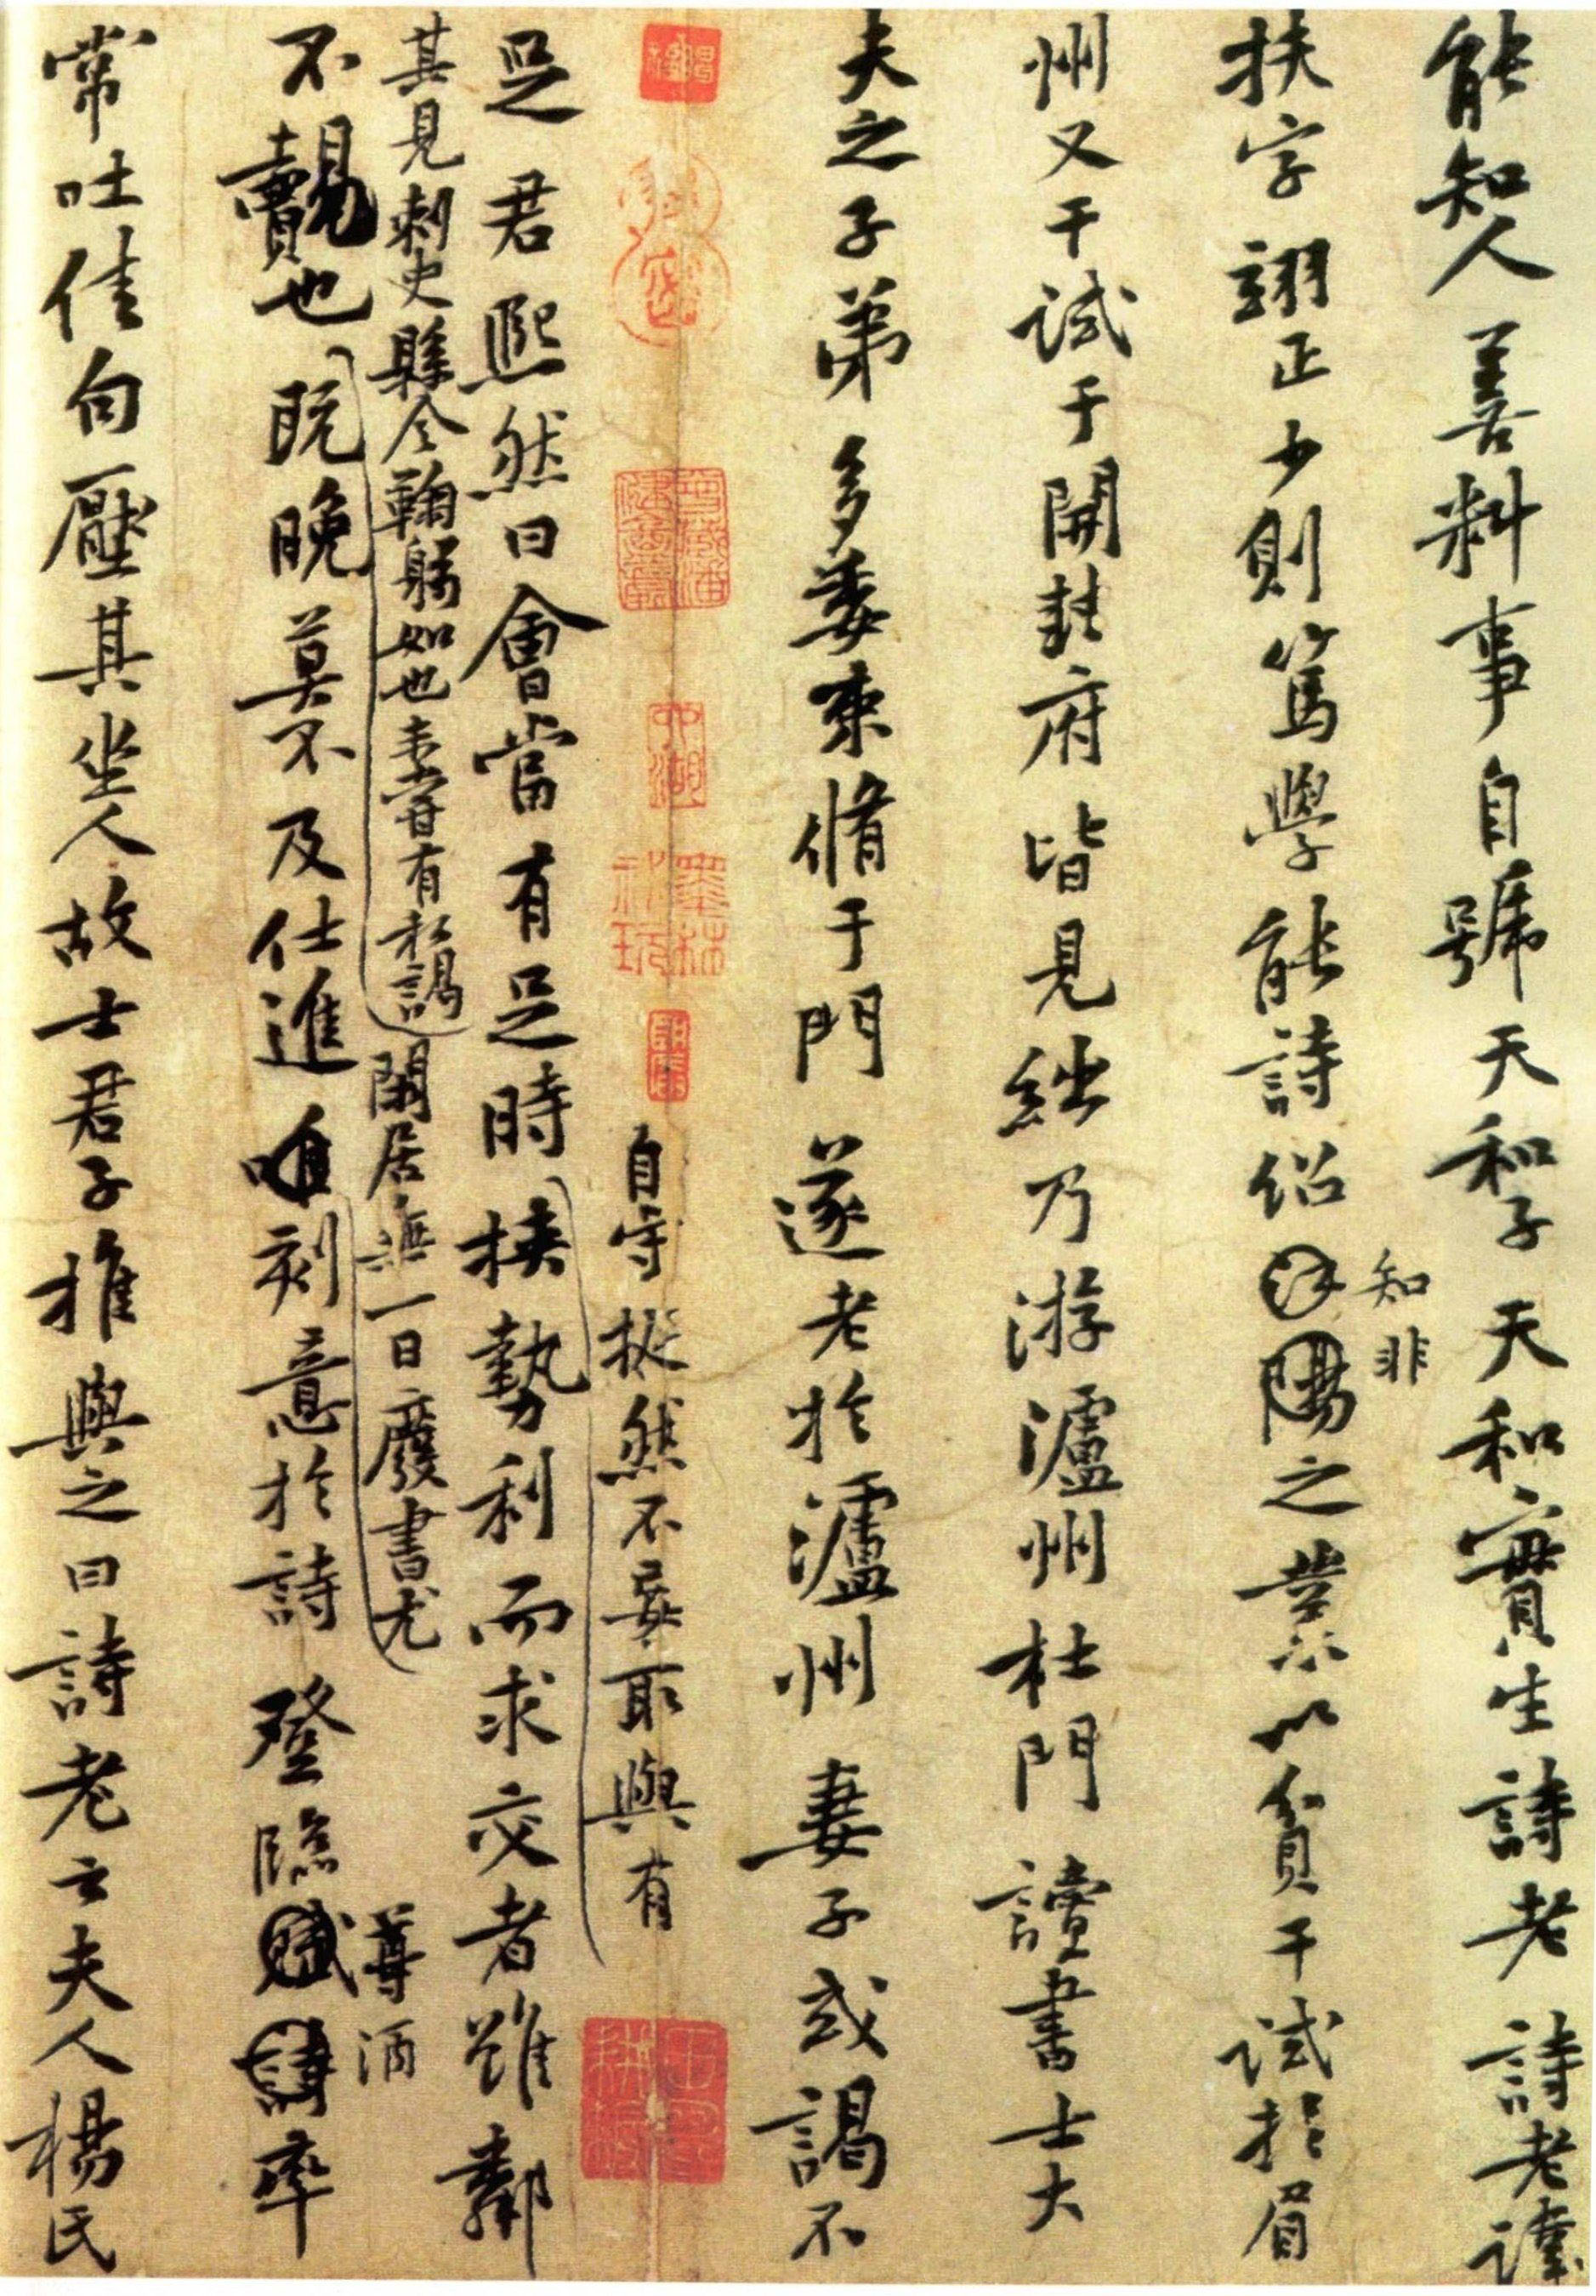 能知人善料事自號天和子天和實生詩老詩老諱
知非
扶字翊正少則篤學能詩紹陽之業以貧干試於眉
州又干試于開封府皆見絀乃游瀘州杜門讀書士大
夫之子弟多委束脩于門遂老於瀘州妻子或謁不
自守挺然不妄取與有
足君熙然曰會當有足時挾勢利而求交者雖鄰
其見刺史縣令鞠躬如也未嘗有私謁閑居無一日廢書尤
尊酒
不覿也既晚莫不及仕進唯刻意於詩登臨賦詩率
常吐佳句壓其坐人故士君子推與之曰詩老云夫人楊氏